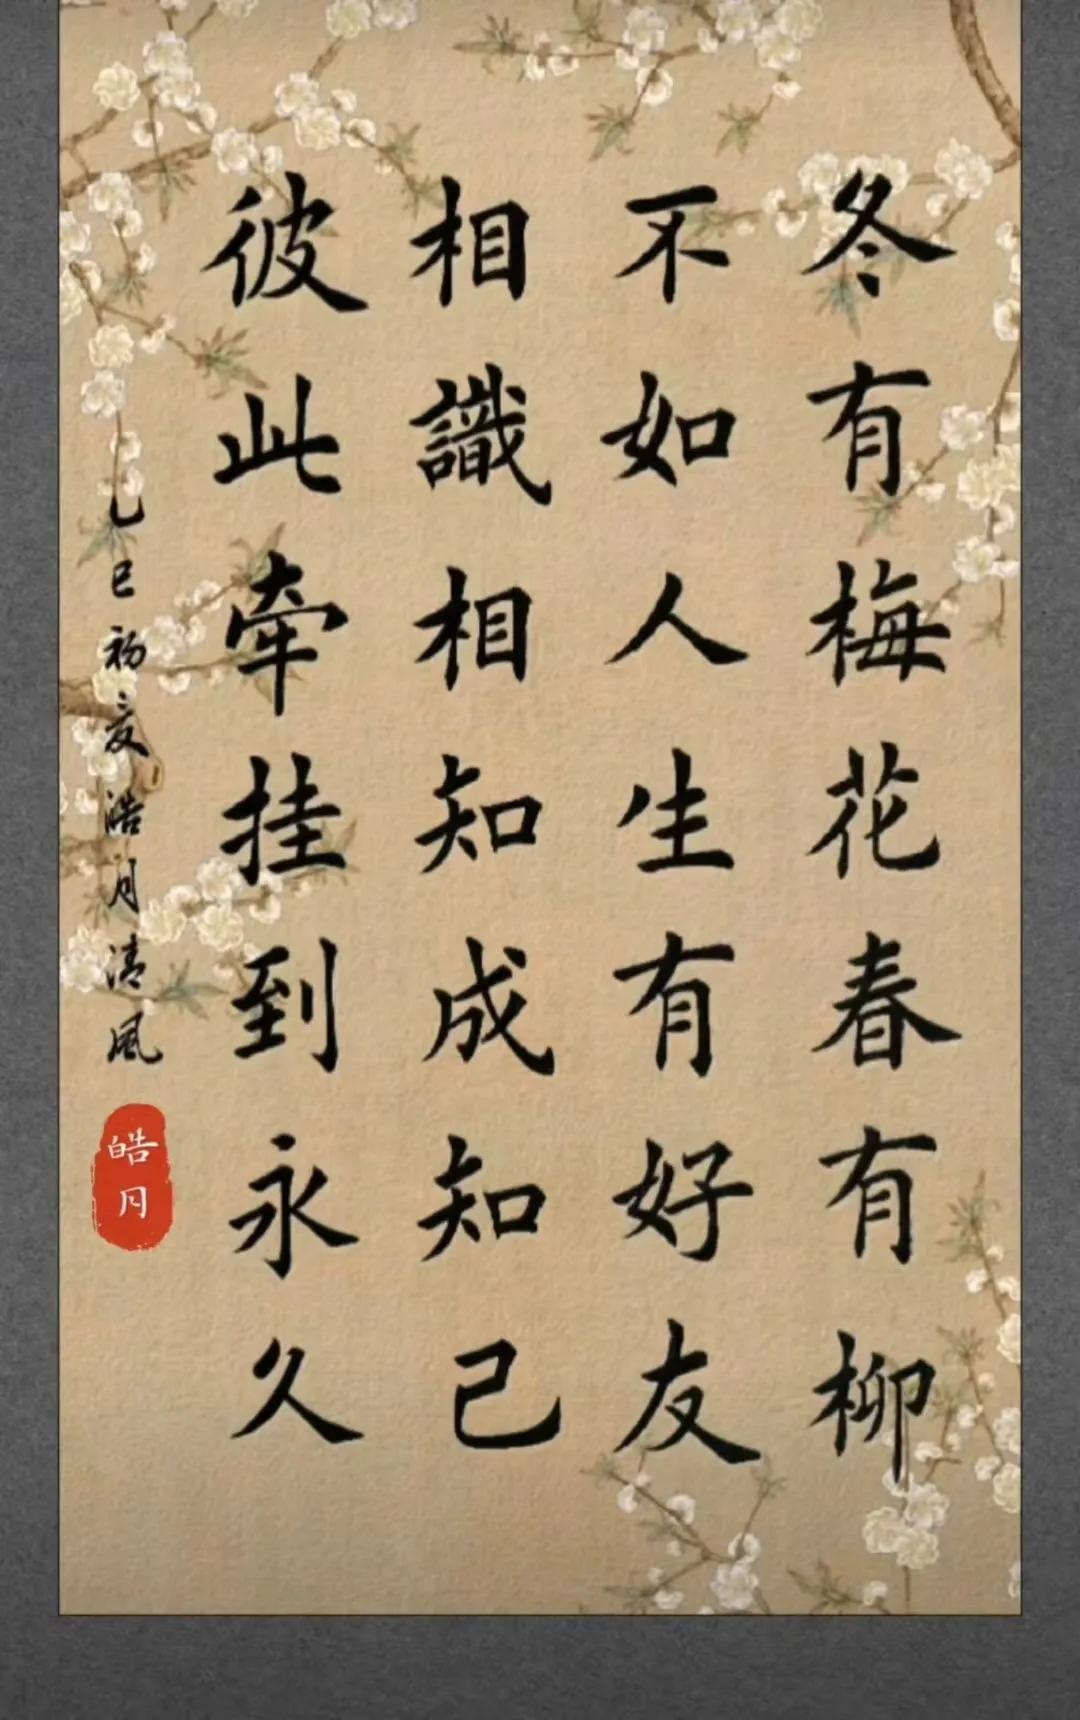 冬有梅花春有柳
不如人生有好友
相識相知成知己
彼此牵挂到永久
乙巳初夏浩月清風
皓月